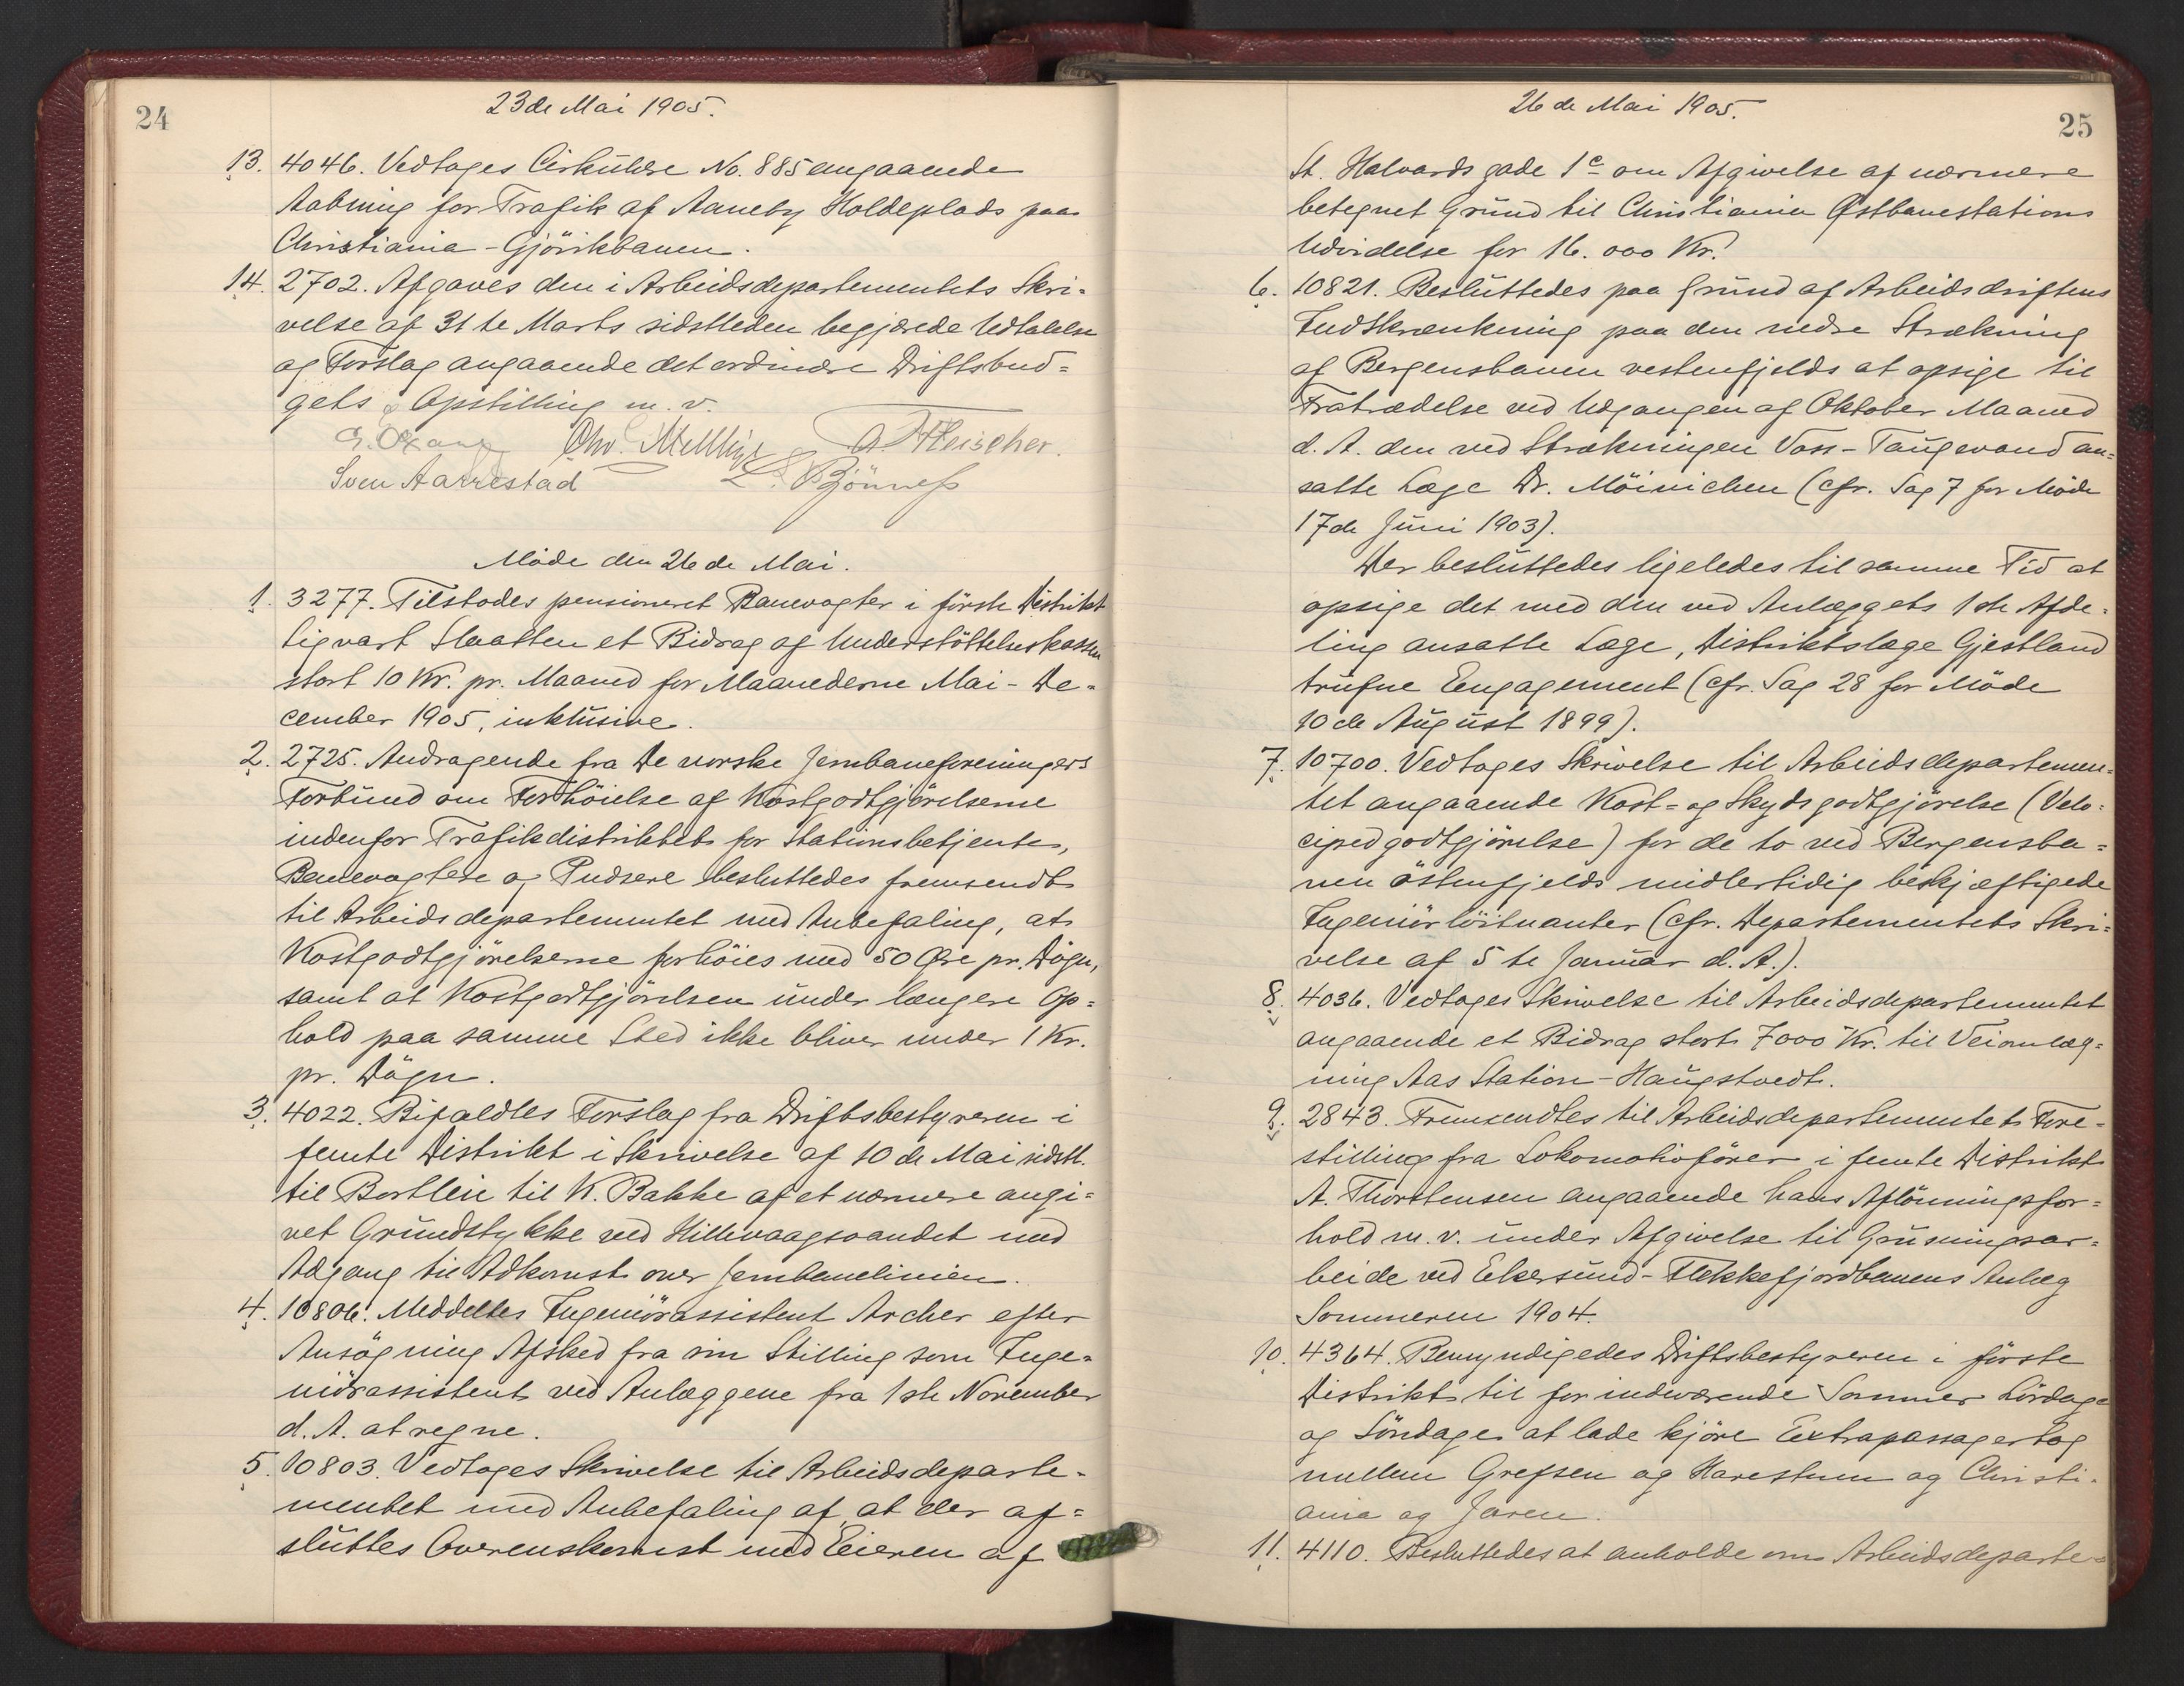 24
23de Mai 1905.
13. 4046. Vedtoges Cirkulære No. 885 angaaende
Aabning for Trafik af Aaneby Holdeplads paa
Christiania-Gjövikbanen.
14. 2702. Afgaves den i Arbeidsdepartementets Skri-
velse af 31te Marts sidstleden begjærede Udtalelse
og Forslag angaaende det ordinære Driftsbud-
gets Opstilling m. v.
Chr. Mellbye A. Fleischer.
Sven Aarrestad L. Bjönness
Möde den 26de Mai.
1. 3277. Tilstodes pensioneret Banevogter i förste Distrikt
Sigvart Slaatten et Bidrag af Understöttelseskassen
stort 10 Kr. pr. Maaned for Maanederne Mai-De-
cember 1905, inklusive.
2. 2725. Andragende fra De norske Jernbaneforeningers
Forbund om Forhöielse af Kostgodtgjörelserne
indenfor Trafikdistriktet for Stationsbetjente,
Banevogtere og Pudsere besluttedes fremsendt
til Arbeidsdepartementet med Anbefaling, at
Kostgodtgjörelserne forhöies med 50 Øre pr. Dögn,
samt at Kostgodtgjörelsen under længere Op-
hold paa samme Sted ikke bliver under 1 Kr.
pr. Dögn.
3. 4022. Bifaldtes Forslag fra Driftsbestyreren i
femte Distrikt i Skrivelse af 10de Mai sidstl.
til Bortleie til K. Bakke af et nærmere angi-
vet Grundstykke ved Hillevaagsvandet med
Adgang til Adkomst over Jernbanelinien.
4. 10806. Meddeltes Ingeniörassistent Archer efter
Ansögning Afsked fra sin Stilling som Inge-
niörassistent ved Anlæggene fra 1ste November
d. A. at regne.
5. 10803. Vedtoges Skrivelse til Arbeidsdeparte-
mentet med Anbefaling af, at der af-
sluttes Overenskomst med Eieren af
26de Mai 1905.
25
St. Halvards gade 1c om Afgivelse af nærmere
betegnet Grund til Christiania Østbanestations
Udvidelse for 16.000 Kr.
6. 10821. Besluttedes paa Grund af Arbeidsdriftens
Indskrænkning paa den nedre Strækning
af Bergensbanen vestenfjelds at opsige til
Fratrædelse ved Udgangen af Oktober Maaned
d. A. den ved Strækningen Voss-Taugevand an-
satte Læge Dr. Möinichen (cfr. Sag 7 for Möde
17de Juni 1903).
Der besluttedes ligeledes til samme Tid at
opsige det med den ved Anlæggets 1ste Afde-
ling ansatte Læge, Distriktslæge Gjestland
trufne Engagement (cfr. Sag 28 for Möde
10de August 1899).
7. 10700. Vedtoges Skrivelse til Arbeidsdepartemen-
tet angaaende Kost- og Skydsgodtgjörelse (Velo-
cipedgodtgjörelse) for de to ved Bergensba-
nen östenfjelds midlertidig beskjæftigede
Ingeniörlöitnanter (cfr. Departementets Skri-
velse af 5te Januar d. A.).
8. 4036. Vedtoges Skrivelse til Arbeidsdepartementet
angaaende et Bidrag stort 7000 Kr. til Veiomlæg-
ning Aas Station-Haugstvedt.
9. 2843. Fremsendtes til Arbeidsdepartementet Fore-
stilling fra Lokomotivförer i femte Distrikt
A. Thorstensen angaaende hans Aflönningsfor-
hold m. v. under Afgivelse til Grusningsar-
beide ved Ekersund-Flekkefjordbanens Anlæg
Sommeren 1904.
10. 4364. Bemyndigedes Driftsbestyreren i förste
Distrikt til for indeværende Sommer Lördage
og Söndage at lade kjöre Extrapassagertog
mellem Grefsen og Harestuen og Christi-
ania og Jaren.
11. 4110. Besluttedes at anholde om Arbeidsdeparte-